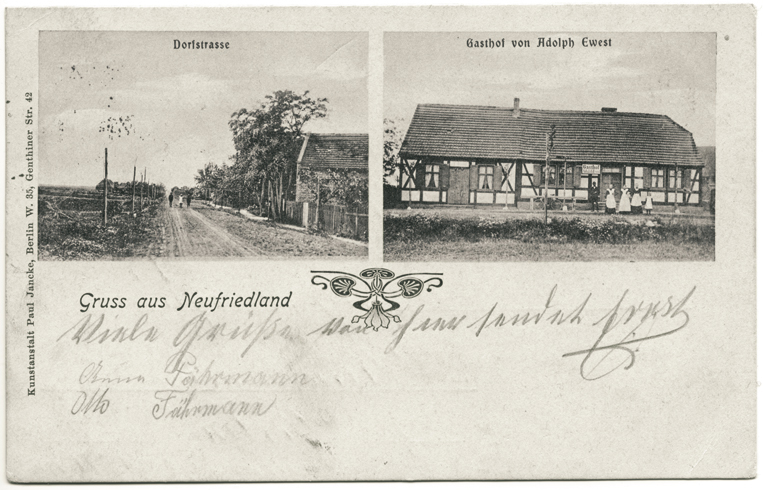 Dorfstrasse
Gasthof von Adolph Ewest
Gasthof
Kunstanstalt Paul Jancke, Berlin W. 35, Genthiner Str. 42
Gruss aus Neufriedland
Viele Grüße von hier sendet Ernst
Anna Fährmann
Otto Fährmann